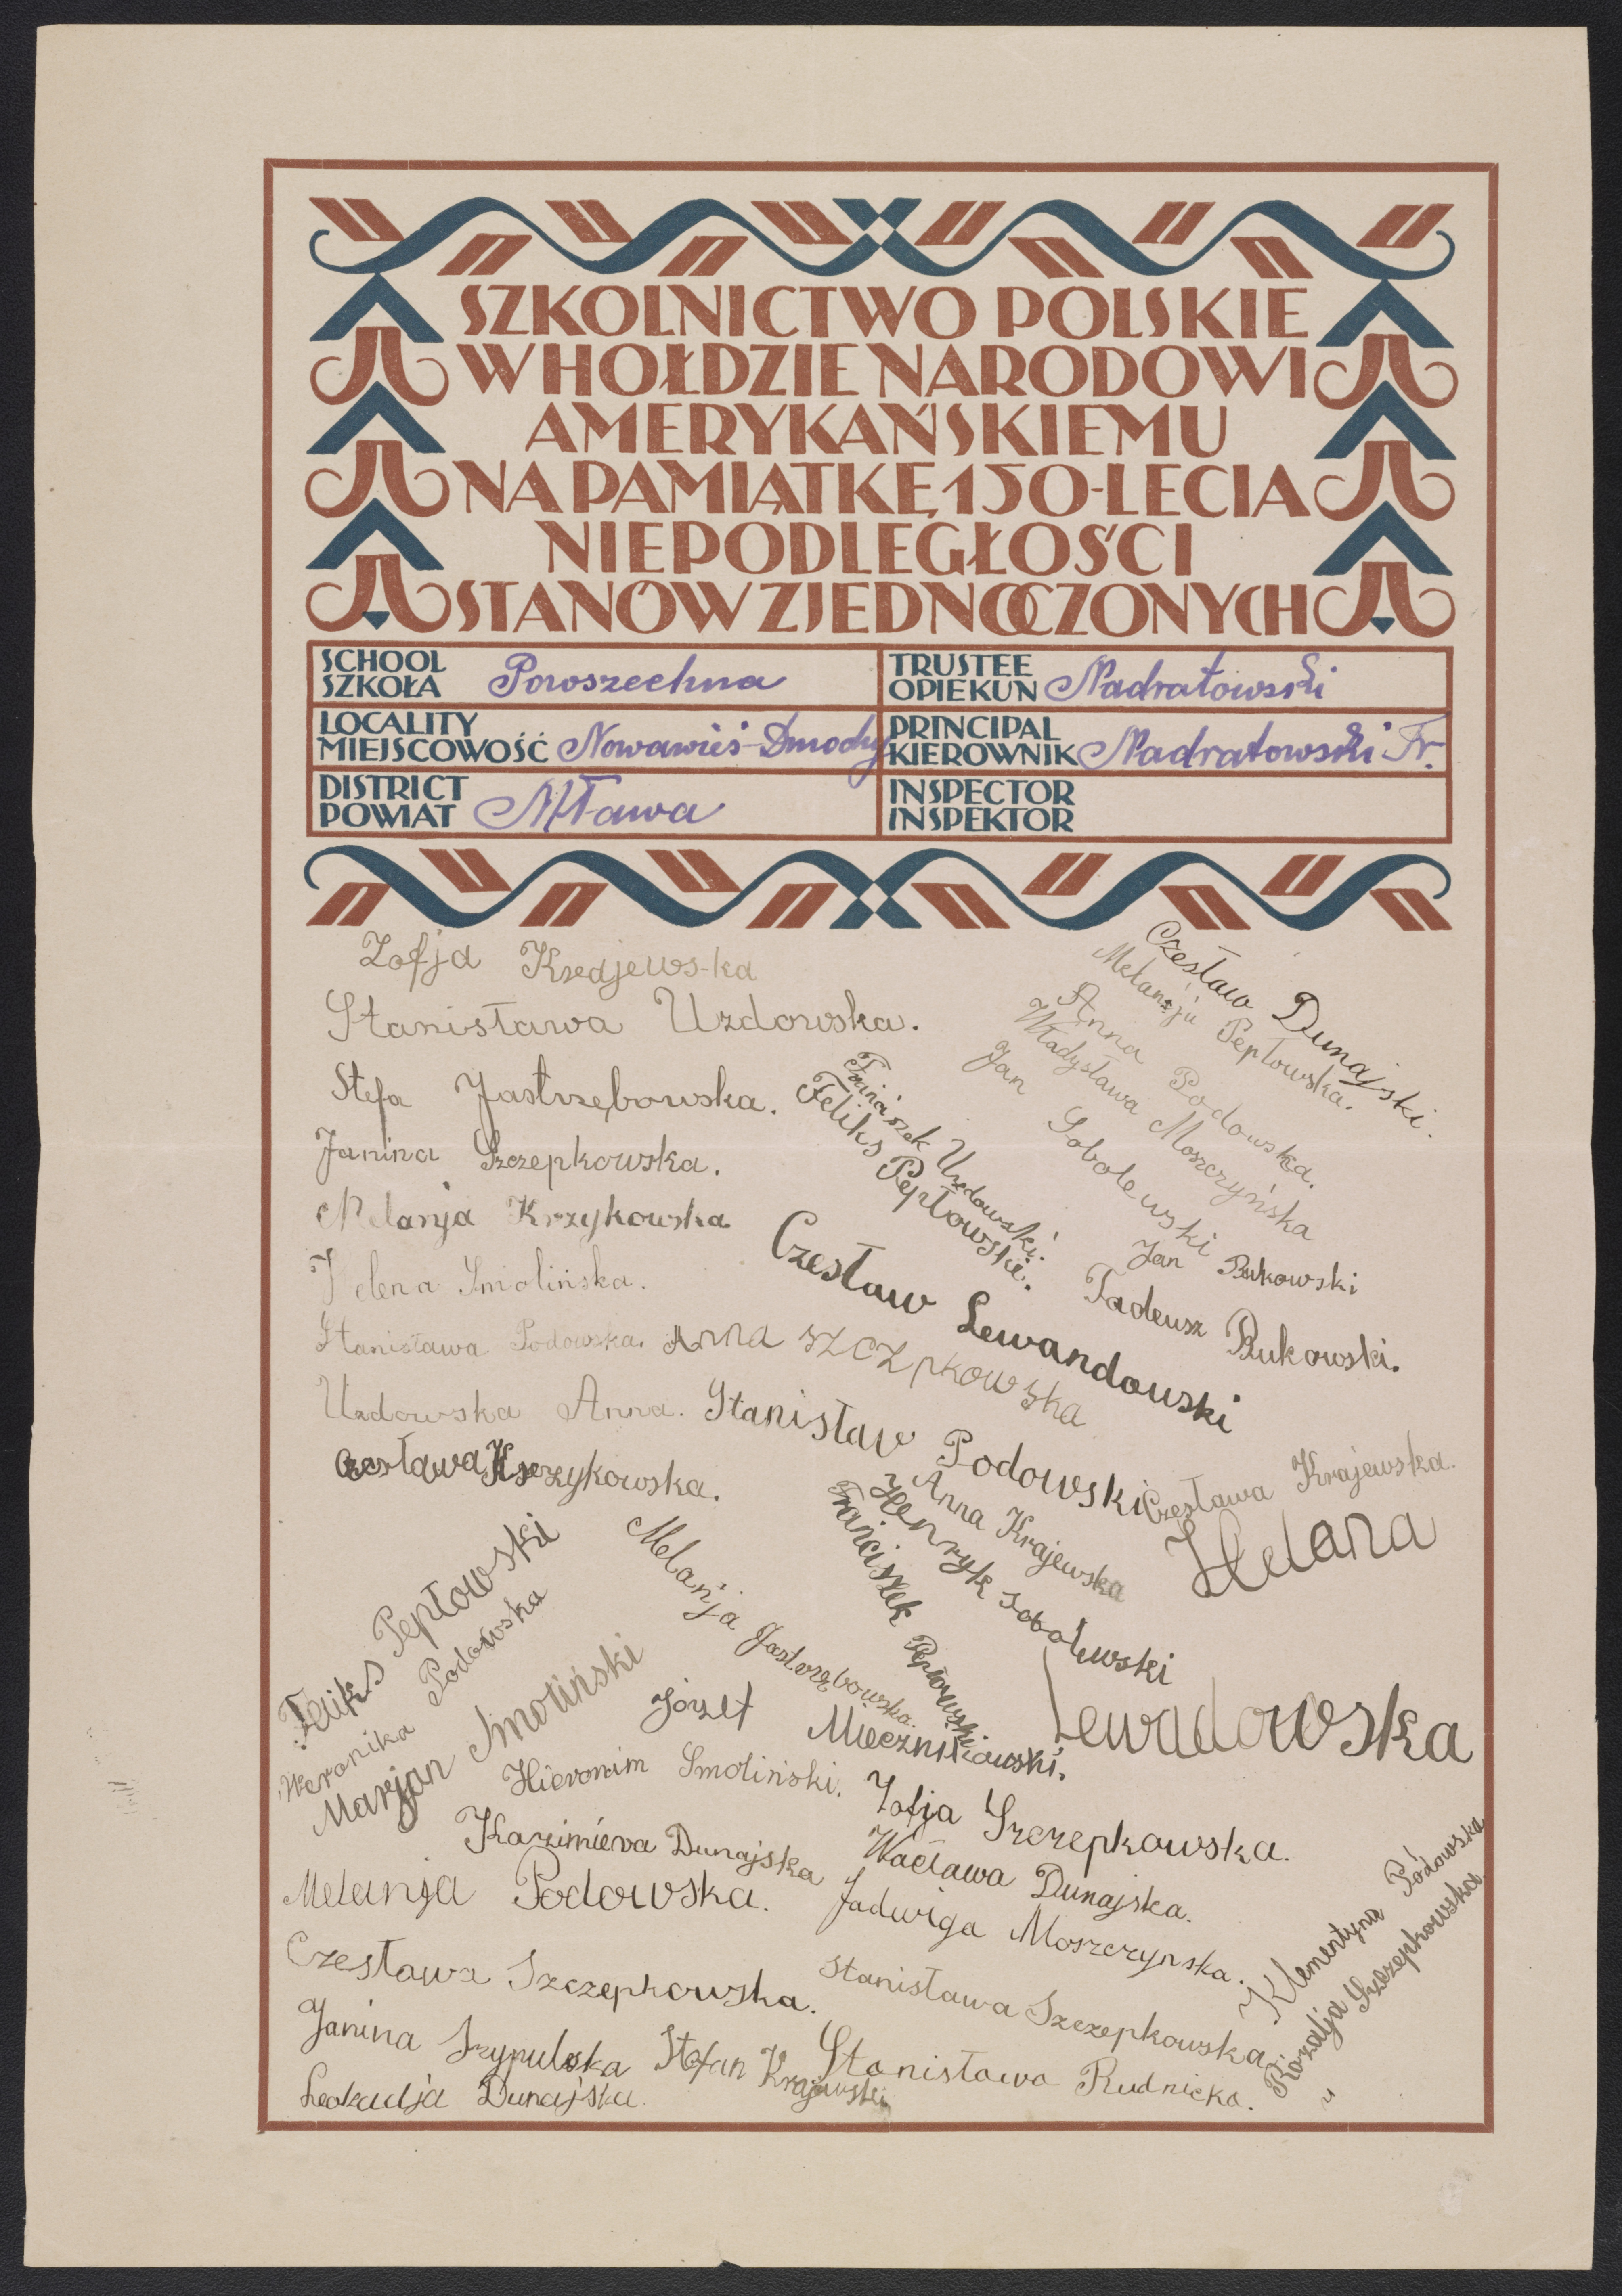 SZKOLNICTWO POLSKIE
W HOŁDZIE NARODOWI
AMERYKAŃSKIEMU
NA PAMIĄTKĘ 150-LECIA
NIEPODLEGŁOŚCI
STANÓW ZJEDNOCZONYCH
SCHOOL
SZKOŁA Powszechna
TRUSTEE
OPIEKUN Nadratowski
LOCALITY
MIEJSCOWOŚĆ Nowawieś-Dmochy
PRINCIPAL
KIEROWNIK Nadratowski Fr.
DISTRICT
POWIAT Mława
INSPECTOR
INSPEKTOR
Zofja Krajews-ka
Stanisława Uzdowska.
Stefa Jastrzębowska.
Janina Szczepkowska.
Melanja Krzykowska
Helena Smolińska.
Stanisława Podowska.
Uzdowska Anna.
Czesława Krzykowska.
Czesław Dunajski.
Melanja Pepłowska.
Anna Podowska.
Władysława Moszczyńska
Jan Sobolewski
Franciszek Uzdowski.
Feliks Pepłowski.
Jan Bukowski
Tadeusz Bukowski.
Czesław Lewandowski
Anna SZCZpkowska
Stanisław Podowski
Czesława Krajewska.
Anna Krajewska
Henryk Sobolewski
Franciszek Pepłowski
Helana
Lewadowska
Feliks Pepłowski
Weronika Podowska
Marjan Smoliński
Melanja Jastrzębowska.
Józef Miecznikowski.
Hieronim Smoliński.
Zofja Szczepkowska.
Kazimiera Dunajska
Wacława Dunajska.
Melanja Podowska.
Jadwiga Moszczynska.
Czesława Szczepkowska.
Stanisława Szczepkowska
Klementyna Podowska
Rozalja Szczepkowska
Janina Szypulska
Stefan Krajewski
Stanisława Rudnicka.
Leokadja Dunajska.